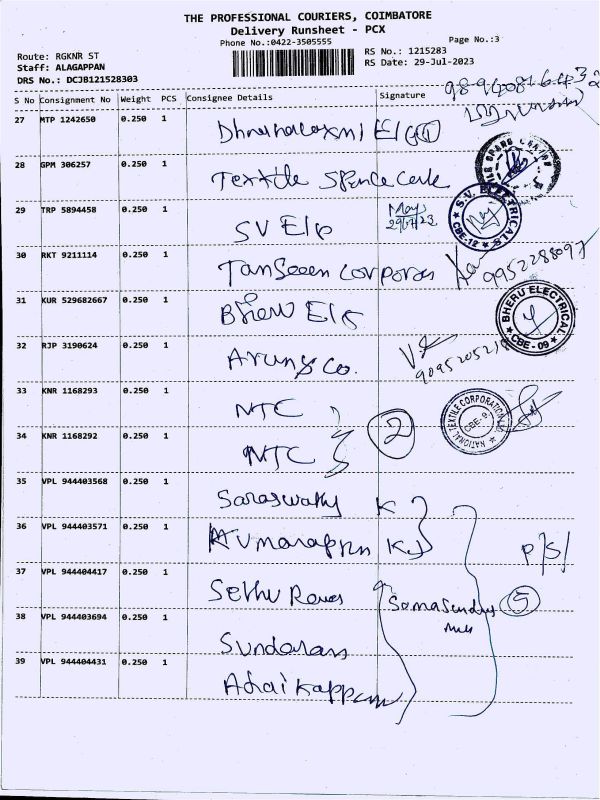 THE PROFESSIONAL COURIERS, COIMBATORE
Delivery Runsheet - PCX
Phone No.:0422-3505555
Page No.:3
Route: RGKNR ST
Staff: ALAGAPPAN
DRS No.: DCJB121528303
RS No.: 1215283
RS Date: 29-Jul-2023
S No Consignment No Weight PCS Consignee Details Signature
27 MTP 1242650 0.250 1
28 GPM 306257 0.250 1 Textile
29 TRP 5894458 0.250 1 SV Ele May 29/7/23
S.V. ELECTRICALS
CBE-12
30 RKT 9211114 0.250 1 Tanseen 9952288097
31 KUR 529682667 0.250 1 Bheru Ele
BHERU ELECTRICAL
CBE - 09
32 RJP 3190624 0.250 1 Arun & Co.
33 KNR 1168293 0.250 1 NTC
34 KNR 1168292 0.250 1 NTC 2
NATIONAL TEXTILE CORPORATION
CBE-9
35 VPL 944403568 0.250 1 Saraswathy K
36 VPL 944403571 0.250 1 Kumarappan K P/S/
37 VPL 944404417 0.250 1 Sethu 5
38 VPL 944403694 0.250 1 Sundaram
39 VPL 944404431 0.250 1 Adaikappan